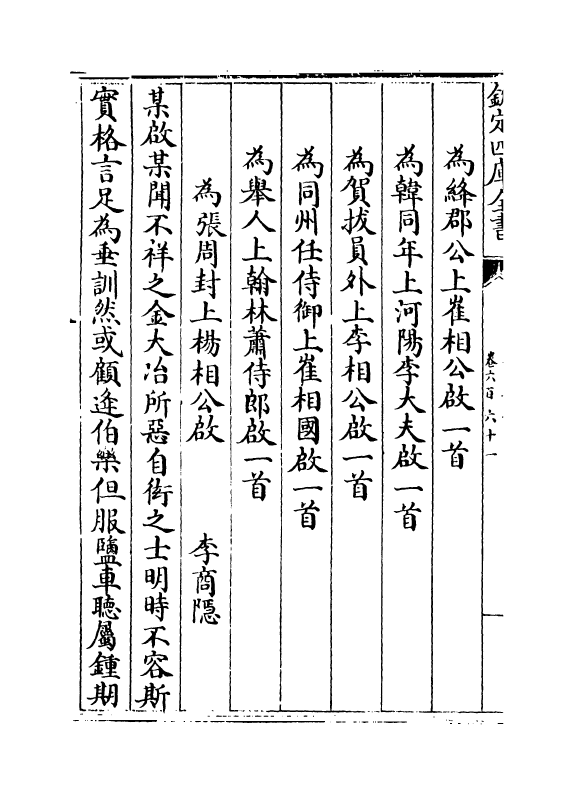 欽定四庫全書
卷六百六十一
為絳郡公上崔相公啟一首
為韓同年上河陽李大夫啟一首
為賀拔員外上李相公啟一首
為同州任侍御上崔相國啟一首
為舉人上翰林蕭侍郎啟一首
為張周封上楊相公啟 李商隱
某啟某聞不祥之金大冶所惡自衒之士明時不容斯
實格言足為垂訓然或顧逢伯樂但服鹽車聽屬鍾期